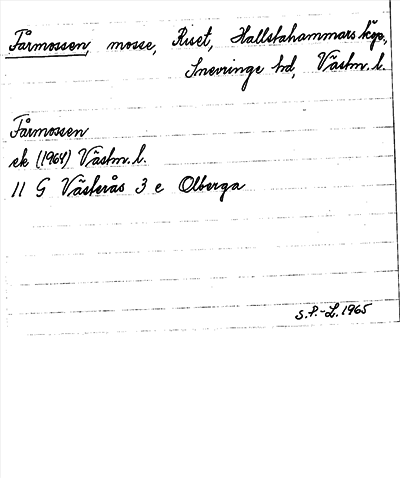 Fårmossen, mosse, Riset, Hallstahammars kg.,
Snevringe hd, Västm. l.
Fårmossen
ek (1964) Västm. l.
11 G Västerås 3 e Olberga
S.P.-L. 1965